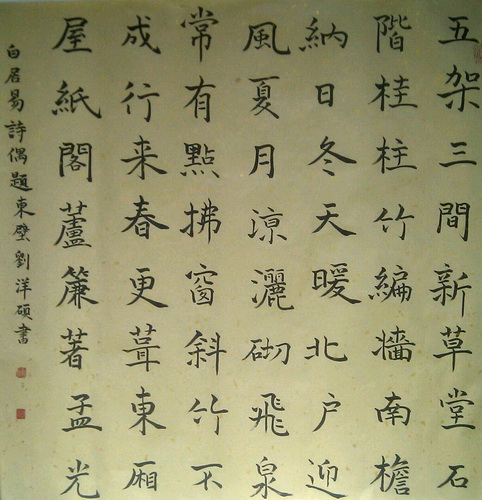 五架三間新草堂石
階桂柱竹編墻南檐
納日冬天暖北户迎
風夏月涼灑砌飛泉
常有點拂窗斜竹不
成行来春更葺東厢
屋紙閣蘆簾著孟光
白居易詩偶題東壁劉洋碩書